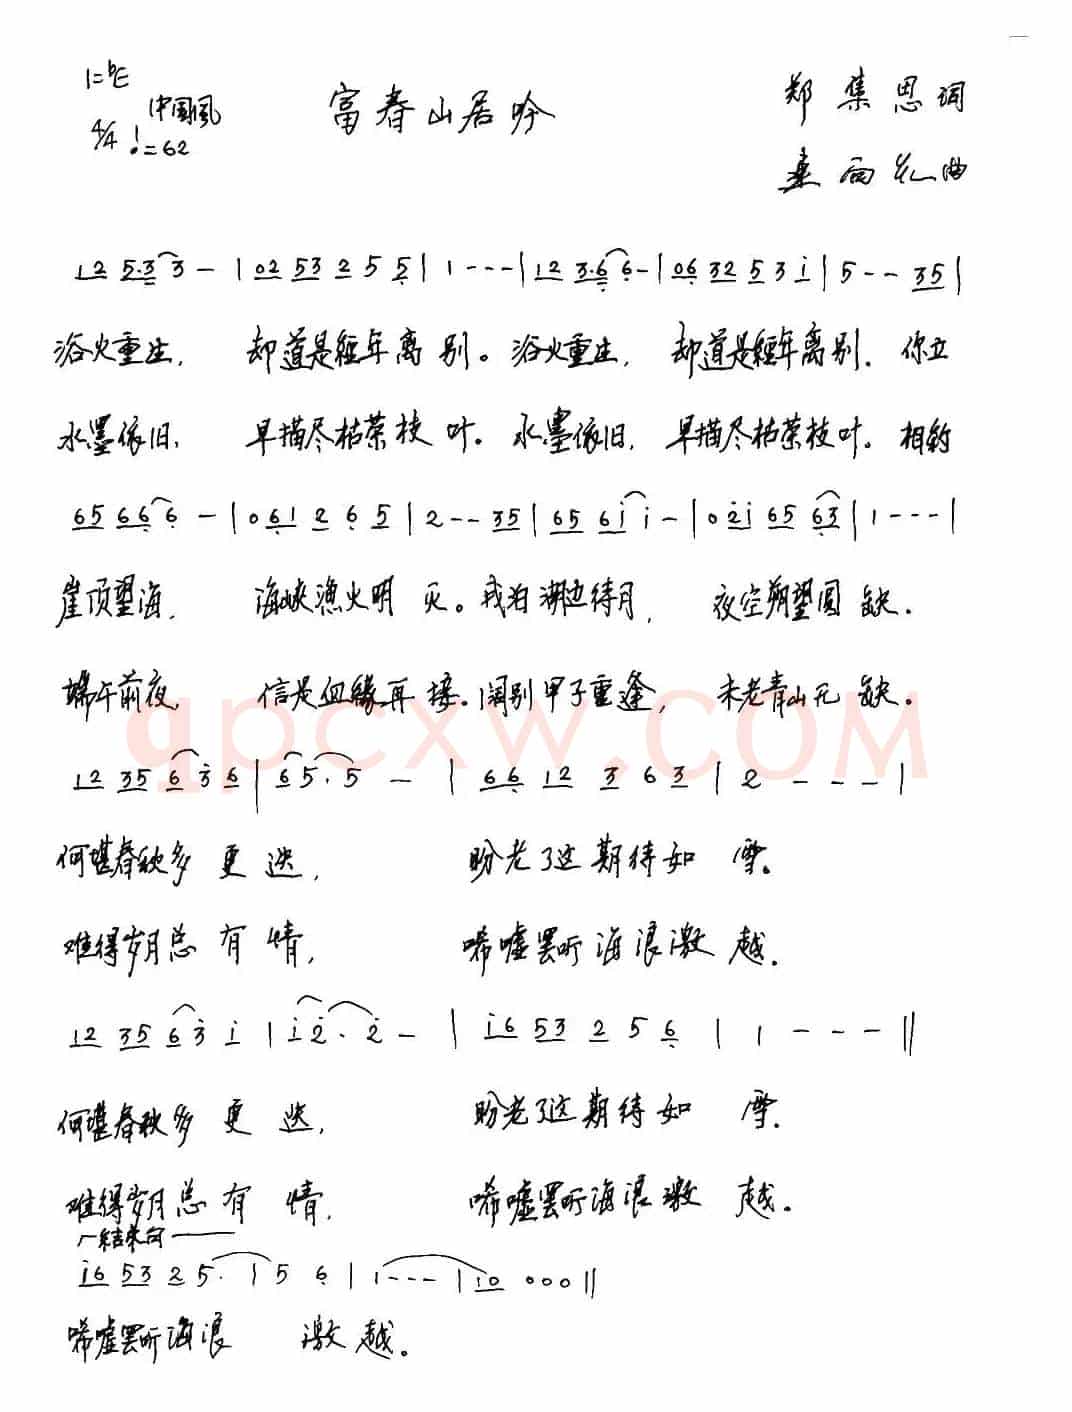 1=♭E
中国風
4/4 ♩=62
富春山居吟
郑集思词
桑雨红曲
12 5·3 3 - | 02 53 2 5 5 | 1 - - - | 12 3·6 6 - | 06 32 5 3 i | 5 - - 35 |
浴火重生, 却道是經年离别。浴火重生, 却道是經年离别. 你立
水墨依旧, 早描尽枯荣枝叶。水墨依旧, 早描尽枯荣枝叶。相約
65 66 6 - | 0 61 2 6 5 | 2 - - 35 | 65 6i i - | 0 2i 65 63 | 1 - - - |
崖顶望海, 海峡漁火明灭。我泊湖边待月, 夜空朔望圆缺.
端午前夜, 信是血緣再接. 阔别甲子重逢, 未老青山无缺。
qpcxw.COM
12 35 6 3 6 | 6 5 · 5 - | 66 12 3 6 3 | 2 - - - |
何堪春秋多更迭, 盼老了这期待如雪.
难得岁月总有情, 唏嘘罢听海浪激越.
12 35 6 3 i | i 2 · 2 - | i6 53 2 5 6 | 1 - - - ||
何堪春秋多更迭, 盼老了这期待如雪.
难得岁月总有情. 唏嘘罢听海浪激越.
结束句
i6 53 2 5 · | 5 6 | 1 - - - | 10 0 0 0 ||
唏嘘罢听海浪 激越。